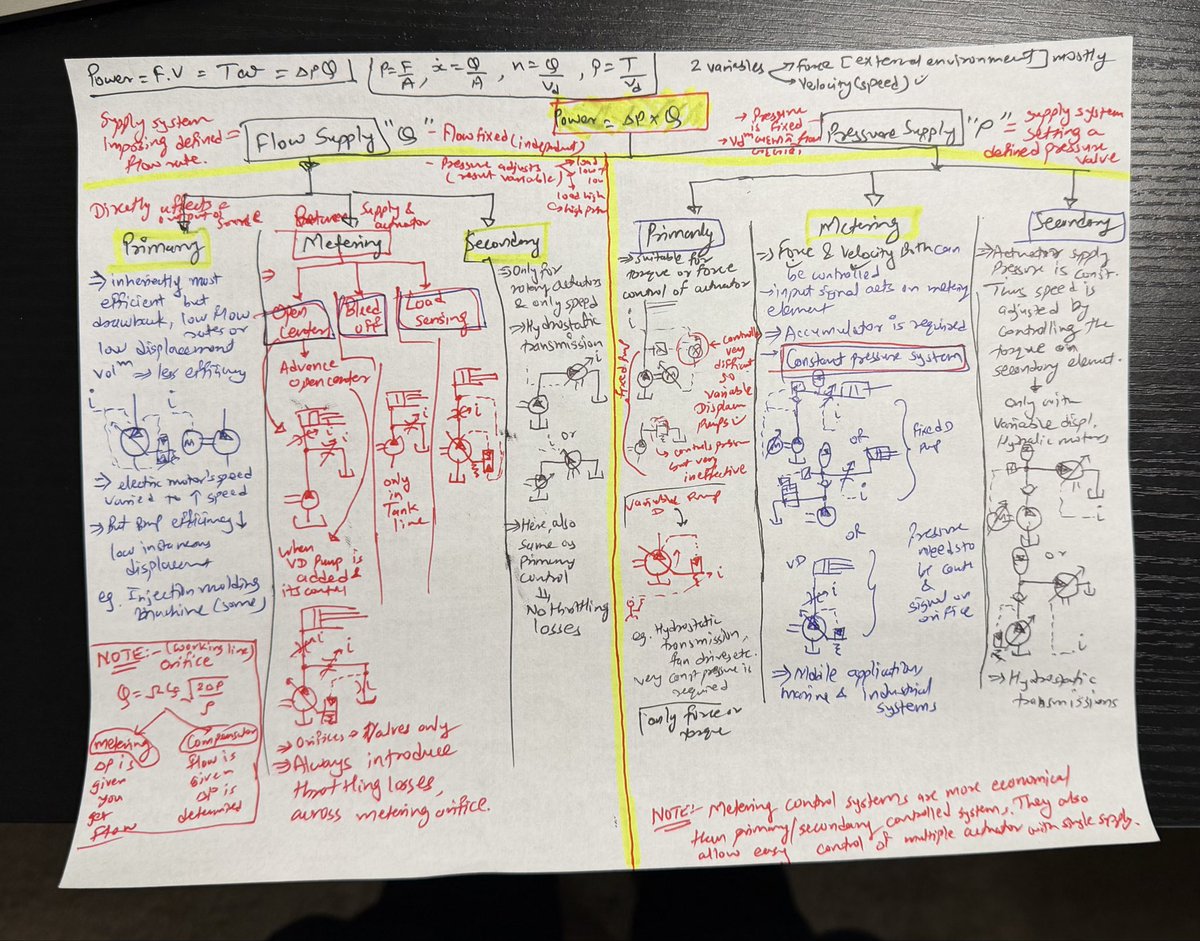 Power = F.V = Tω = ΔpQ
P = F/A, ẋ = Q/A, n = Q/Vd, P = T/Vd
2 variables
Force [external environment] mostly
Velocity (speed)
Power = ΔP x Q
Supply system
Imposing defined =
flow rate.
Flow Supply "Q"
- Flow fixed (independent)
- Pressure adjusts
(result variable)
load
low →
low
load high
→ high
→ Pressure
is fixed
Pressure Supply "P" =
supply system
setting a
defined pressure
valve
Directly affects
output of
source
Primary
⇒ inherently most
efficient but
drawback, low flow
rates or
low displacement
Volm ⇒ less efficiency
i
i
M
⇒ electric motor's speed
varied to ↑ speed
⇒ But pump efficiency ↓
low
displacement
eg. Injection molding
Machine (some)
NOTE:- (working line)
orifice
Q = √2ΔP/ρ
metering
ΔP is
given
you
get
flow
Compensator
flow is
given
ΔP is
determined
Between
Supply &
actuator
Metering
Open
Center
Bleed
off
Load
Sensing
Advance
open center
i
i
only
in
Tank
line
i
When
VD Pump is
added &
its
i
i
⇒ Orifices → Valves only
⇒ Always introduce
throttling losses,
across metering orifice.
Secondary
⇒ Only for
rotary actuators
& only speed
⇒ Hydrostatic
transmission
i
or
i
⇒ Here, also
same as
Primary
control
↓
No throttling
losses
Primarily
⇒ Suitable for
torque or force
control of actuator
i
fixed pump
← controlls
very
difficult
so
variable
Displacm
Pumps
i
→ controls
but very
ineffective
Variable Pump
D
i
eg. Hydrostatic
transmission,
fan drives etc.
very const pressure is
required
only force or
torque
Metering
⇒ Force & Velocity Both can
be controlled
- input signal acts on metering
element
⇒ Accumulator is required
→ Constant pressure system
i
M
or
i
fixed D
pump
or
VD
i
Pressure
needs to
be
&
signal on
orifice
⇒ Mobile application,
marine & industrial
systems
Secondary
⇒ Actuator supply
Pressure is const.
Thus speed is
adjusted by
controlling the
torque on
secondary element.
↓
only with
variable displ.
motors
M
i
or
i
⇒ Hydrostatic
transmissions
NOTE:- Metering control systems are more economical
than primary/secondary controlled systems. They also
allow easy control of multiple actuator with single supply.